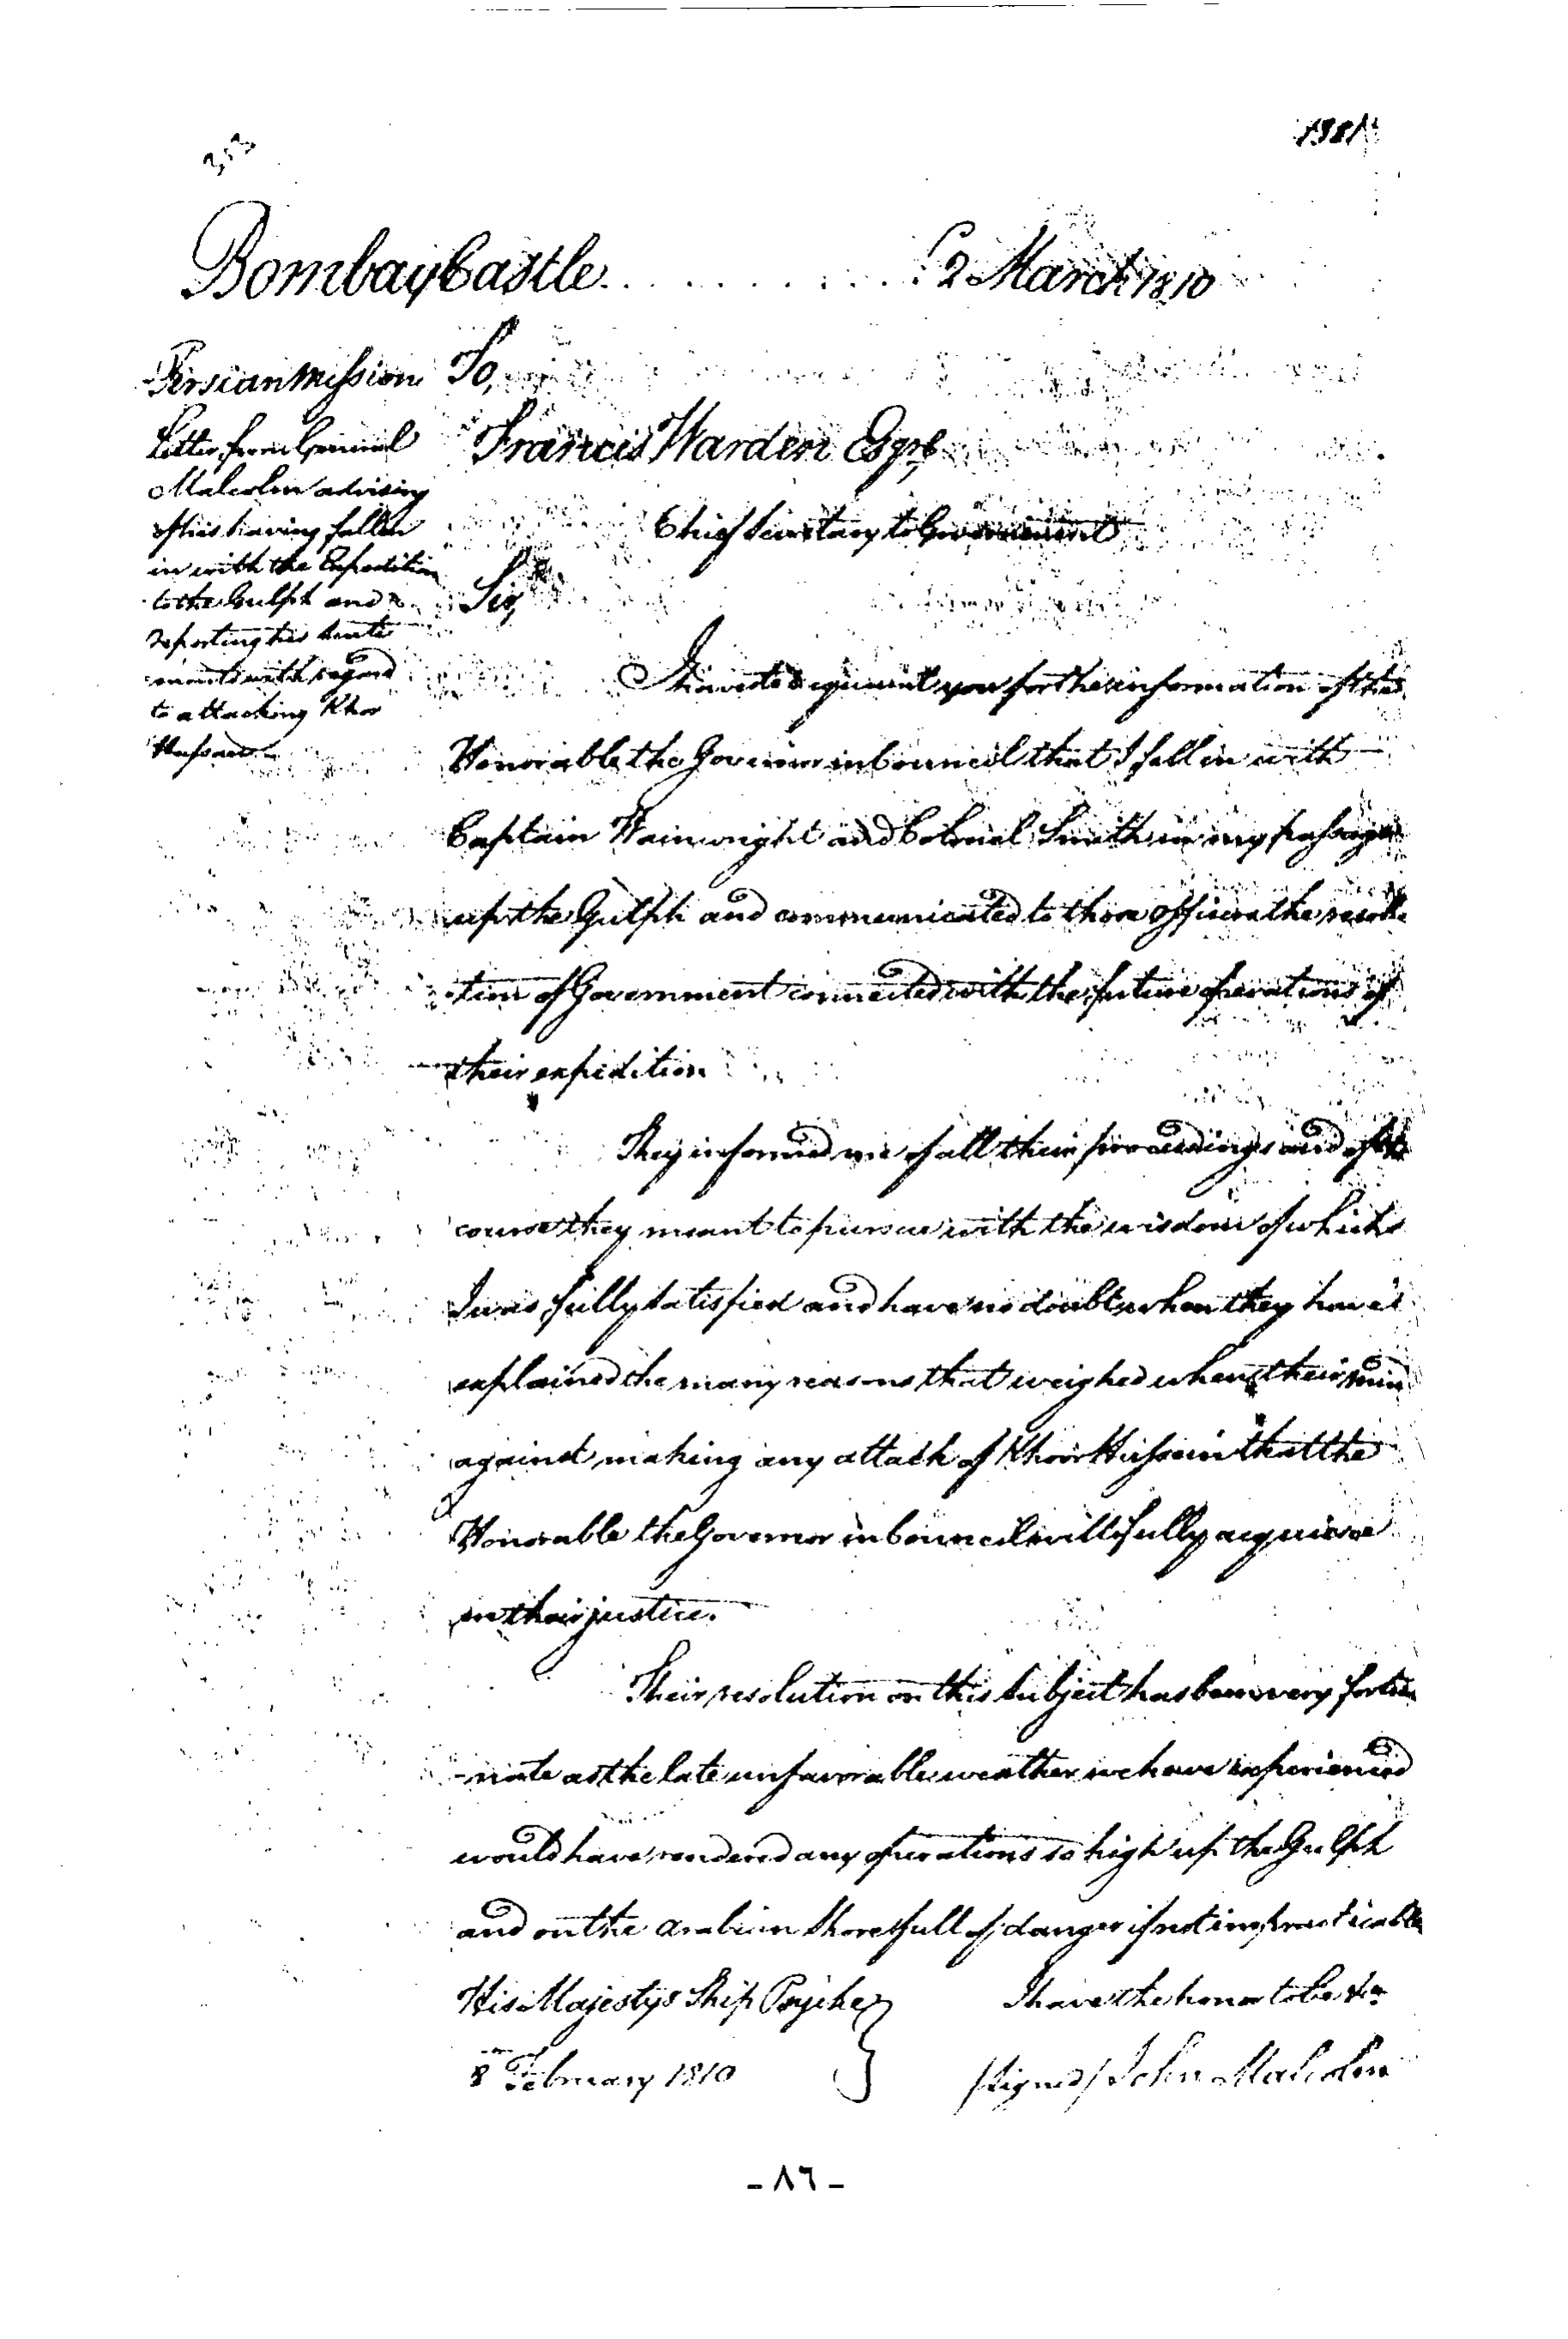 1381
Bombay Castle. . . . . . . . . . . 2 March 1810
Persian Mission
Letter from General
Malcolm advising
of his having fallen
in with the Expedition
to the Gulph and
reporting his senti
ments with regard
to attacking Khor
Hassan
To,
Francis Warden Esqre
Chief Secretary to Government
Sir,
I have to acquaint you for the information of the
Honorable the Governor in Council that I fell in with
Captain Wainwright and Colonel Smith in my passage
up the Gulph and communicated to those officers the resolu
tion of Government connected with the future operations of
their expedition
They informed me of all their proceedings and of the
course they meant to pursue with the wisdom of which
I was fully satisfied and have no doubt when they have
explained the many reasons that weighed when their mind
against making any attack of Khoor Hussein that the
Honorable the Governor in Council will fully acquiesce
in their justice.
Their resolution on this subject has been very fortu
-nate as the late unfavorable weather we have experienced
would have rendered any operations so high up the Gulph
and on the arabian shore full of danger if not impracticable
His Majestys Ship Psyche } I have the honor to be &ca
8 February 1810 /signed/ John Malcolm
- ٨٦ -